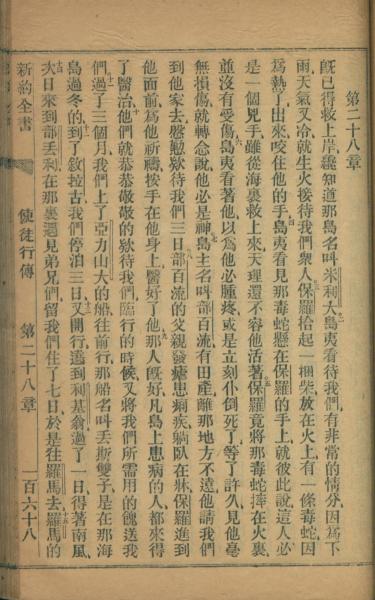 第二十八章
既已得救上岸纔知道那島名叫米利大島夷看待我們有非常的情分因爲下
雨天氣又冷就生火接待我們衆人保羅拾起一捆柴放在火上有一條毒蛇因
爲熱了出來咬住他的手島夷看見那毒蛇懸在保羅的手上就彼此說這人必
是一個兇手雖從海裏救上來天理還不容他活著保羅竟將那毒蛇摔在火裏
並沒有受傷島夷看著他以爲他必腫疼或是立刻仆倒死了等了許久見他毫
無損傷就轉念說他必是神島主名叫部百流有田產離那地方不遠他請我們
到他家去盤慇欵待我們三日部百流的父親發瘧患痢疾躺臥在牀保羅進到
他面前爲他祈禱按手在他身上醫好了他那人旣好凡島上患病的人都來得
了醫治他們就恭恭敬敬的欵待我們臨行的時候又將我們所需用的餽送我
們過了三個月我們上了亞力山大的船往前行那船名叫丟斯雙子是在那海
島過冬的到了敘拉古我們停泊三日又開行遶到利基翁過了一日得著南風
次日來到部丟利在那裏遇見弟兄們留我們住了七日於是往羅馬去羅馬的
新約全書 使徒行傳 第二十八章 一百六十八